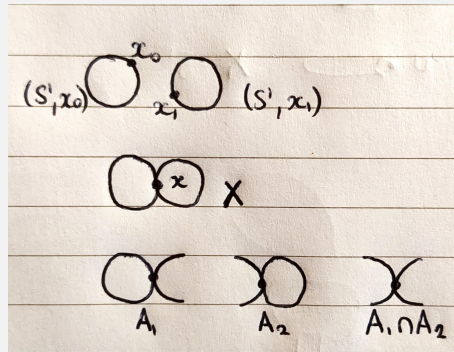 x₀
(S¹, x₀) x₁ (S¹, x₁)
x X
A₁ A₂ A₁∩A₂